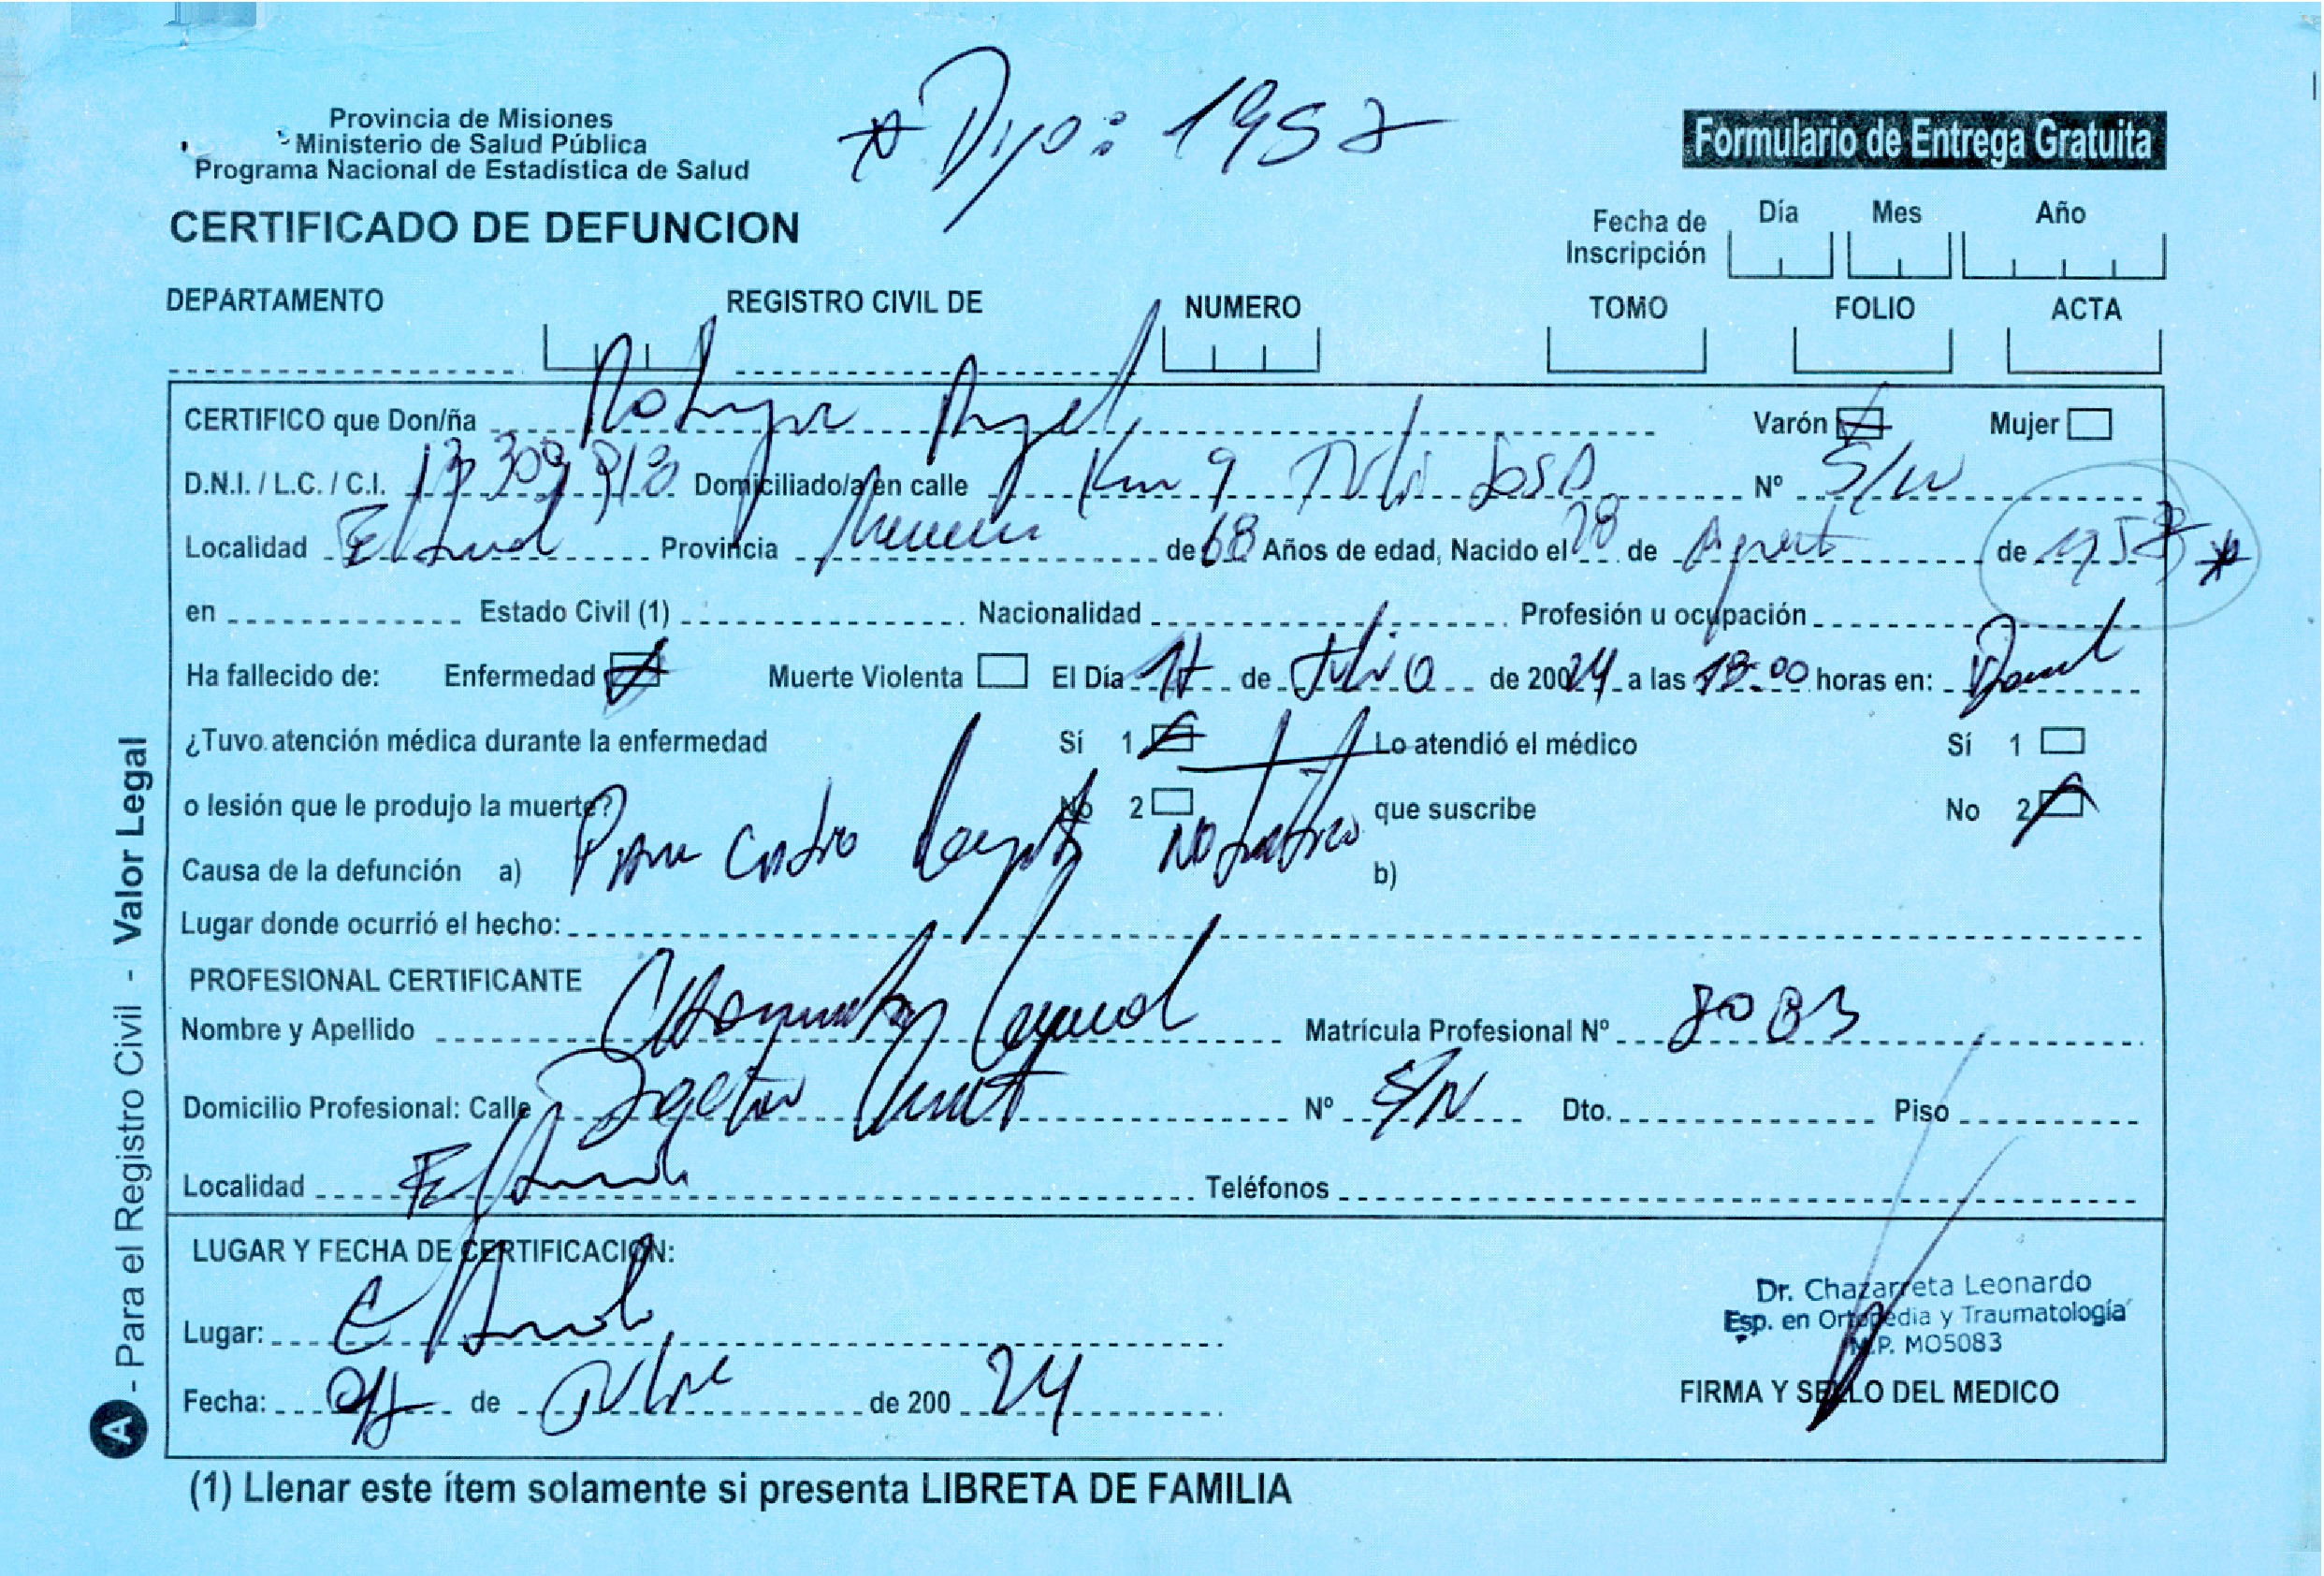 * Dijo: 1957
Provincia de Misiones
Ministerio de Salud Pública
Programa Nacional de Estadística de Salud
Formulario de Entrega Gratuita
CERTIFICADO DE DEFUNCION
Fecha de Inscripción Día Mes Año
DEPARTAMENTO REGISTRO CIVIL DE NUMERO TOMO FOLIO ACTA
CERTIFICO que Don/ña Angel Varón Mujer
D.N.I. / L.C. / C.I. Domiciliado/a en calle Km 9 Nº S/N
Localidad Provincia de 68 Años de edad, Nacido el 28 de Agosto de *
en Estado Civil (1) Nacionalidad Profesión u ocupación
Ha fallecido de: Enfermedad Muerte Violenta El Día 17 de Julio de 20024 a las 18:00 horas en:
¿Tuvo atención médica durante la enfermedad Sí 1 Lo atendió el médico Sí 1
o lesión que le produjo la muerte? No 2 que suscribe No 2
Causa de la defunción a) Paro Cardio no traumático b)
Lugar donde ocurrió el hecho:
PROFESIONAL CERTIFICANTE
Nombre y Apellido Matrícula Profesional Nº
Domicilio Profesional: Calle Nº S/N Dto. Piso
Localidad Teléfonos
LUGAR Y FECHA DE CERTIFICACION:
Lugar:
Fecha: de Julio de 200 24
Dr. Chazarreta Leonardo
Esp. en Ortopedia y Traumatología
M.P. MO5083
FIRMA Y SELLO DEL MEDICO
A - Para el Registro Civil - Valor Legal
(1) Llenar este ítem solamente si presenta LIBRETA DE FAMILIA